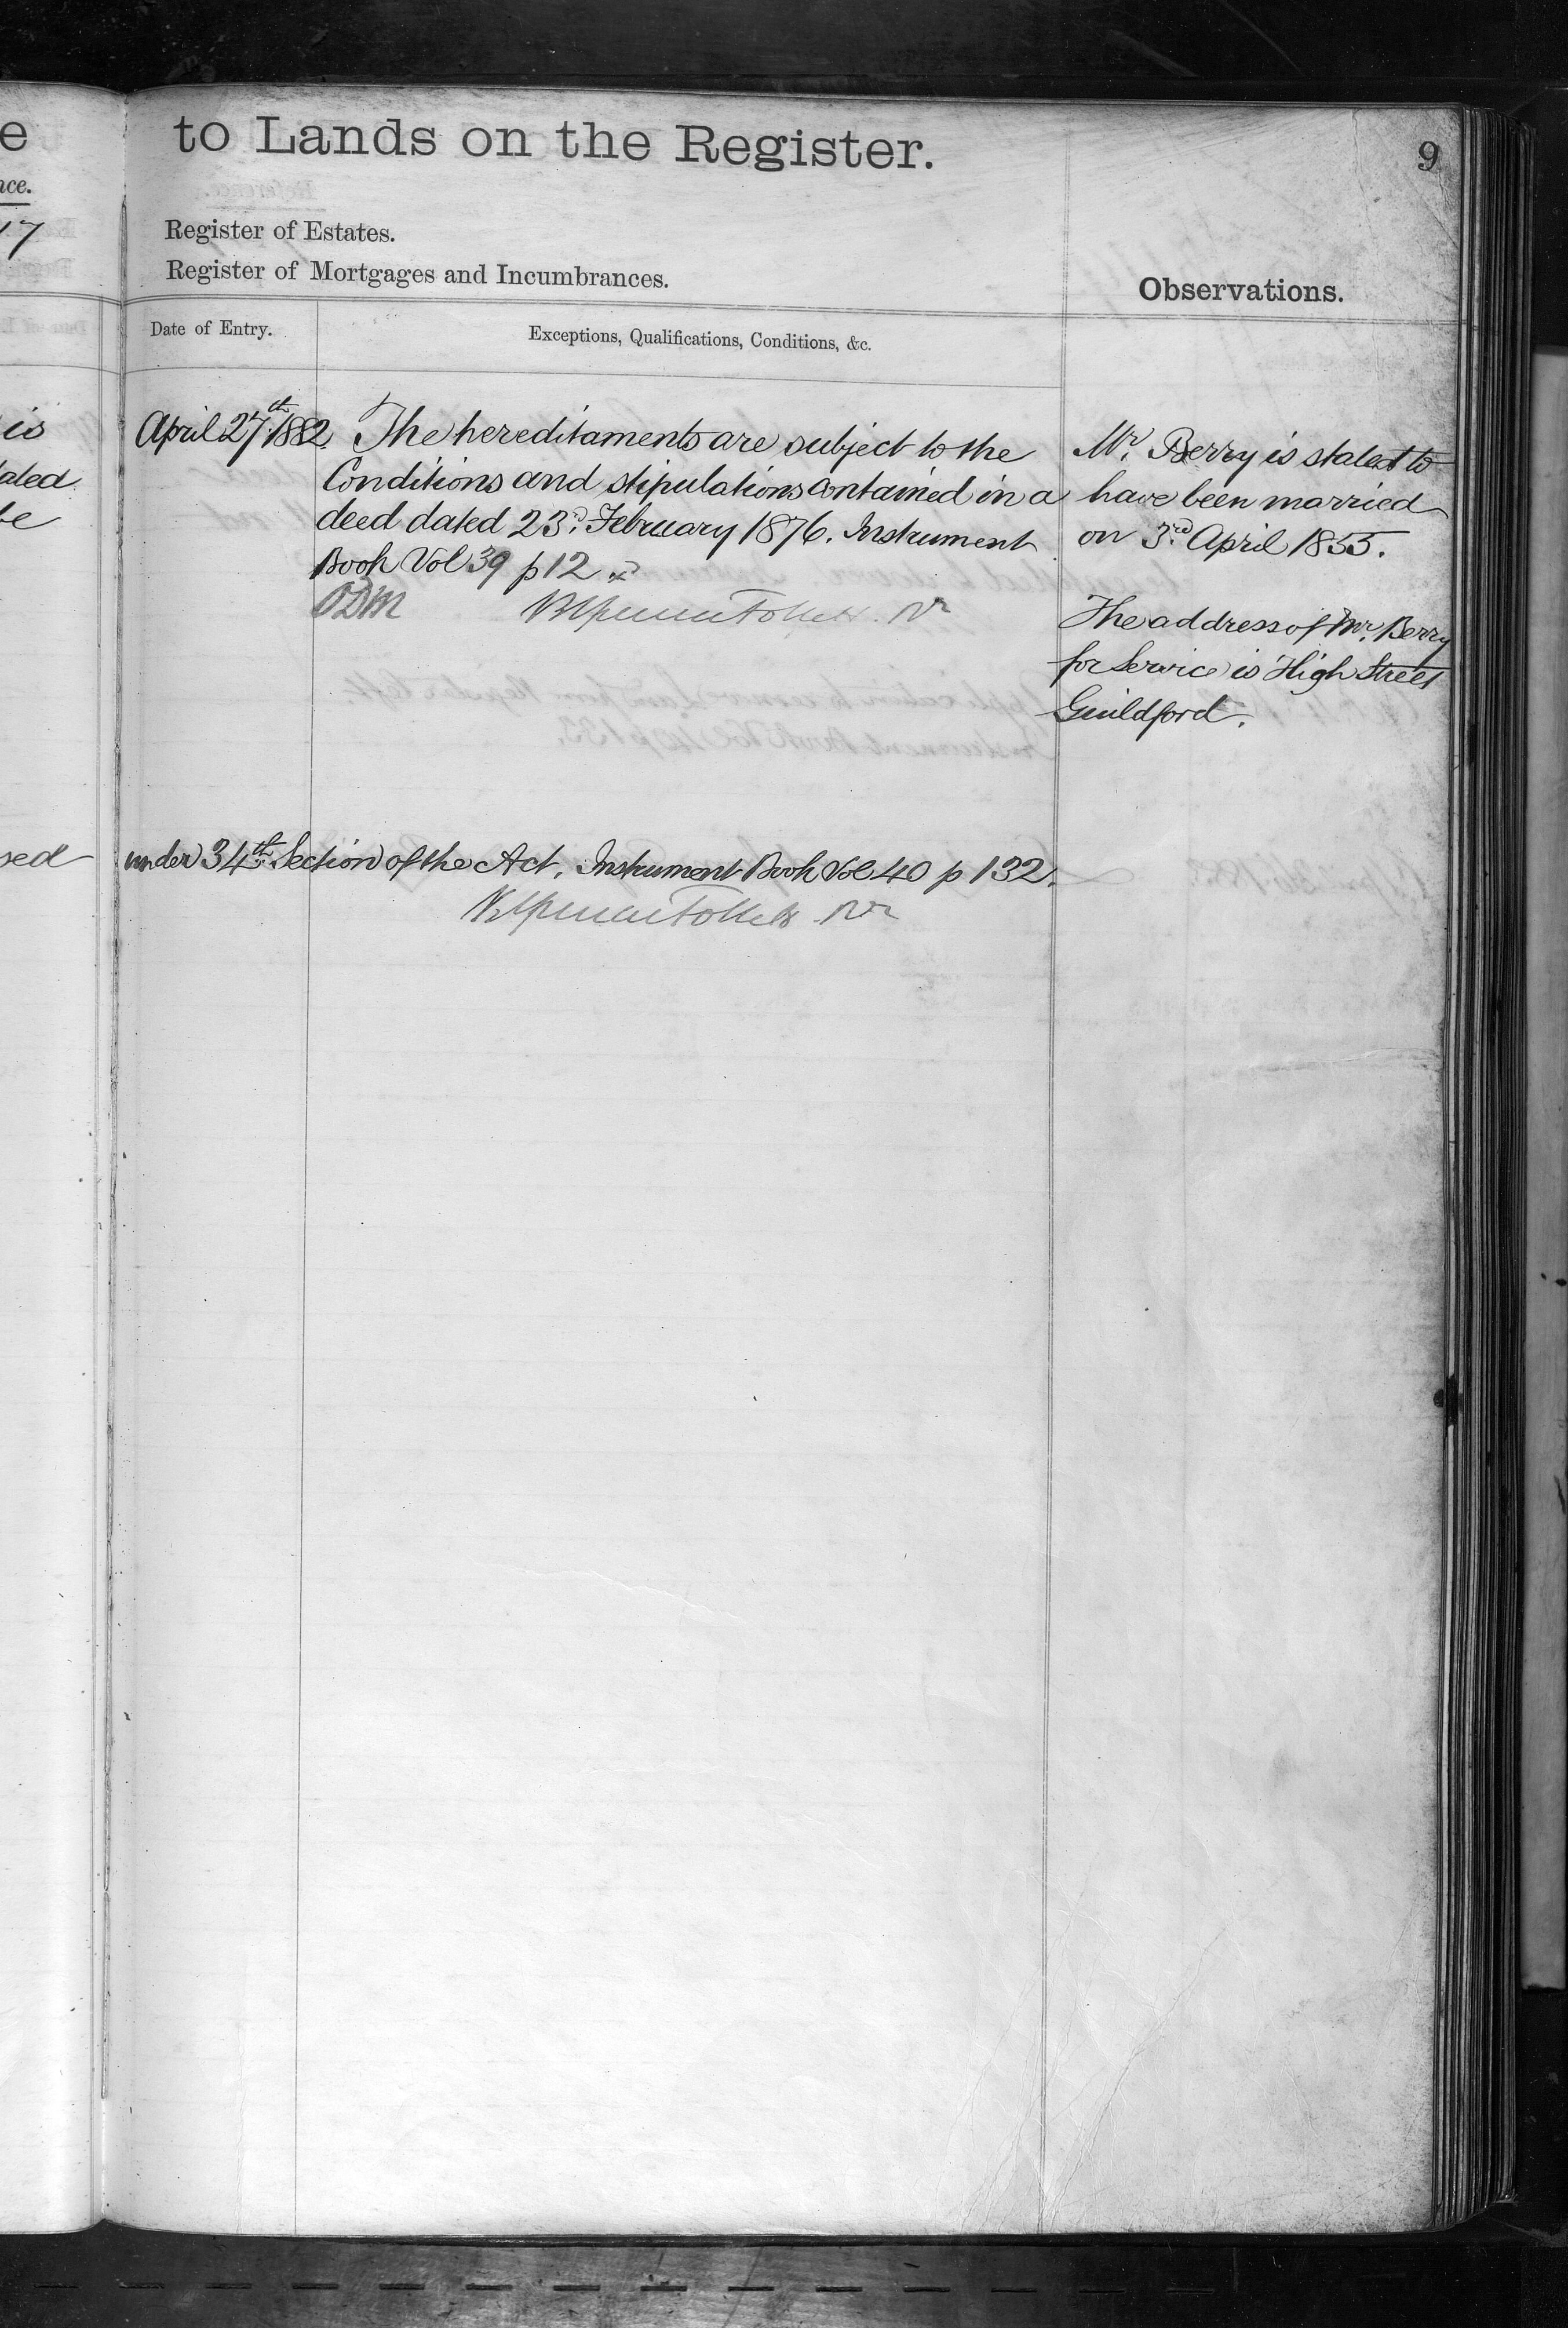 e
nce.
17
is
be
sed
to Lands on the Register.
9
Register of Estates.
Register of Mortgages and Incumbrances.
Observations.
Date of Entry.
Exceptions, Qualifications, Conditions, &c.
April 27th 1882.
The hereditaments are subject to the
Conditions and stipulations contained in a
deed dated 23d. February 1876. Instrument
Book Vol 39 p 12
Mr. Berry is stated to
have been married
on 3rd April 1855.
The address of Mr. Berry
for Service is High Street
Guildford.
under 34th Section of the Act. Instrument Book Vol 40 p 132.